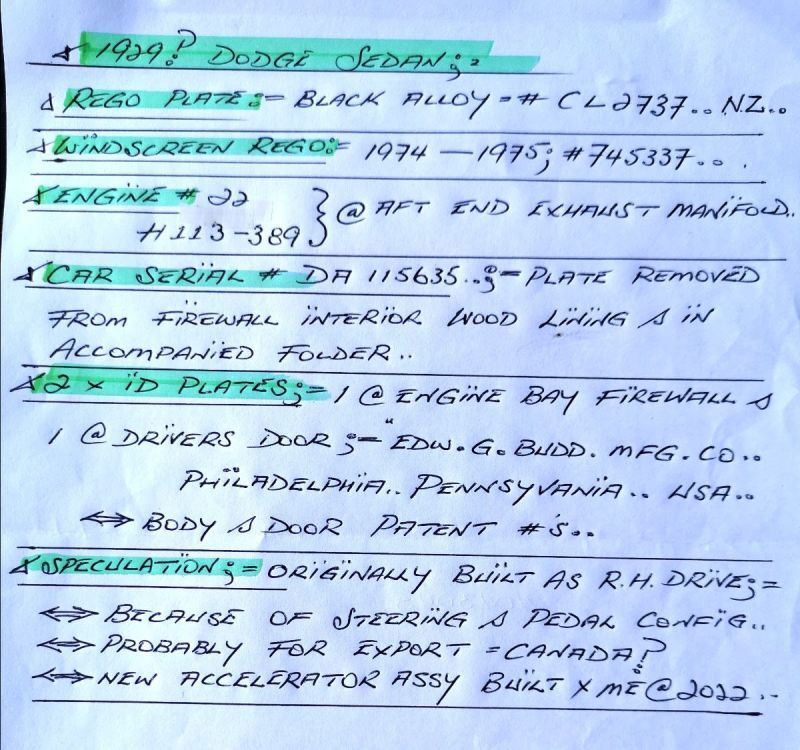 1929? DODGE SEDAN;=
REGO PLATE:= BLACK ALLOY = # CL2737.. NZ..
WINDSCREEN REGO:= 1974 — 1975; #745337...
ENGINE # 22
#113-389 } @ AFT END EXHAUST MANIFOLD..
CAR SERIAL # DA 115635..;= PLATE REMOVED
FROM FIREWALL INTERIOR WOOD LINING & IN
ACCOMPANIED FOLDER..
2 x ID PLATES;= 1 @ ENGINE BAY FIREWALL &
1 @ DRIVERS DOOR ;= "EDW. G. BUDD. MFG. CO..
PHILADELPHIA.. PENNSYVANIA.. USA..
⇔ BODY & DOOR PATENT #'S..
SPECULATION;= ORIGINALLY BUILT AS R.H. DRIVE;=
⇔ BECAUSE OF STEERING & PEDAL CONFIG..
⇔ PROBABLY FOR EXPORT = CANADA?
⇔ NEW ACCELERATOR ASSY BUILT X ME @ 2022..